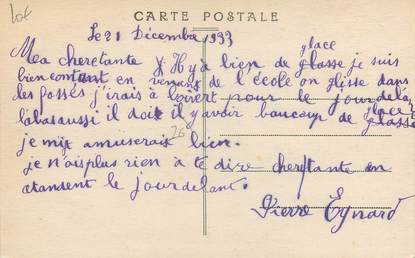 lot
CARTE POSTALE
le 21 Décembre 1933
Ma cheretante il Hya bien de glasse glace je suis
bien contant en venans de l'école on glisse dans
les fossés j'irais à pour le jour de lan
labasaussi il doit il y avoir baucoup de glasse glace
je mix amuserais bien.
je n'aisplus rien à te dire cherettante en
atandent le jour delant.
Pierre Eynard